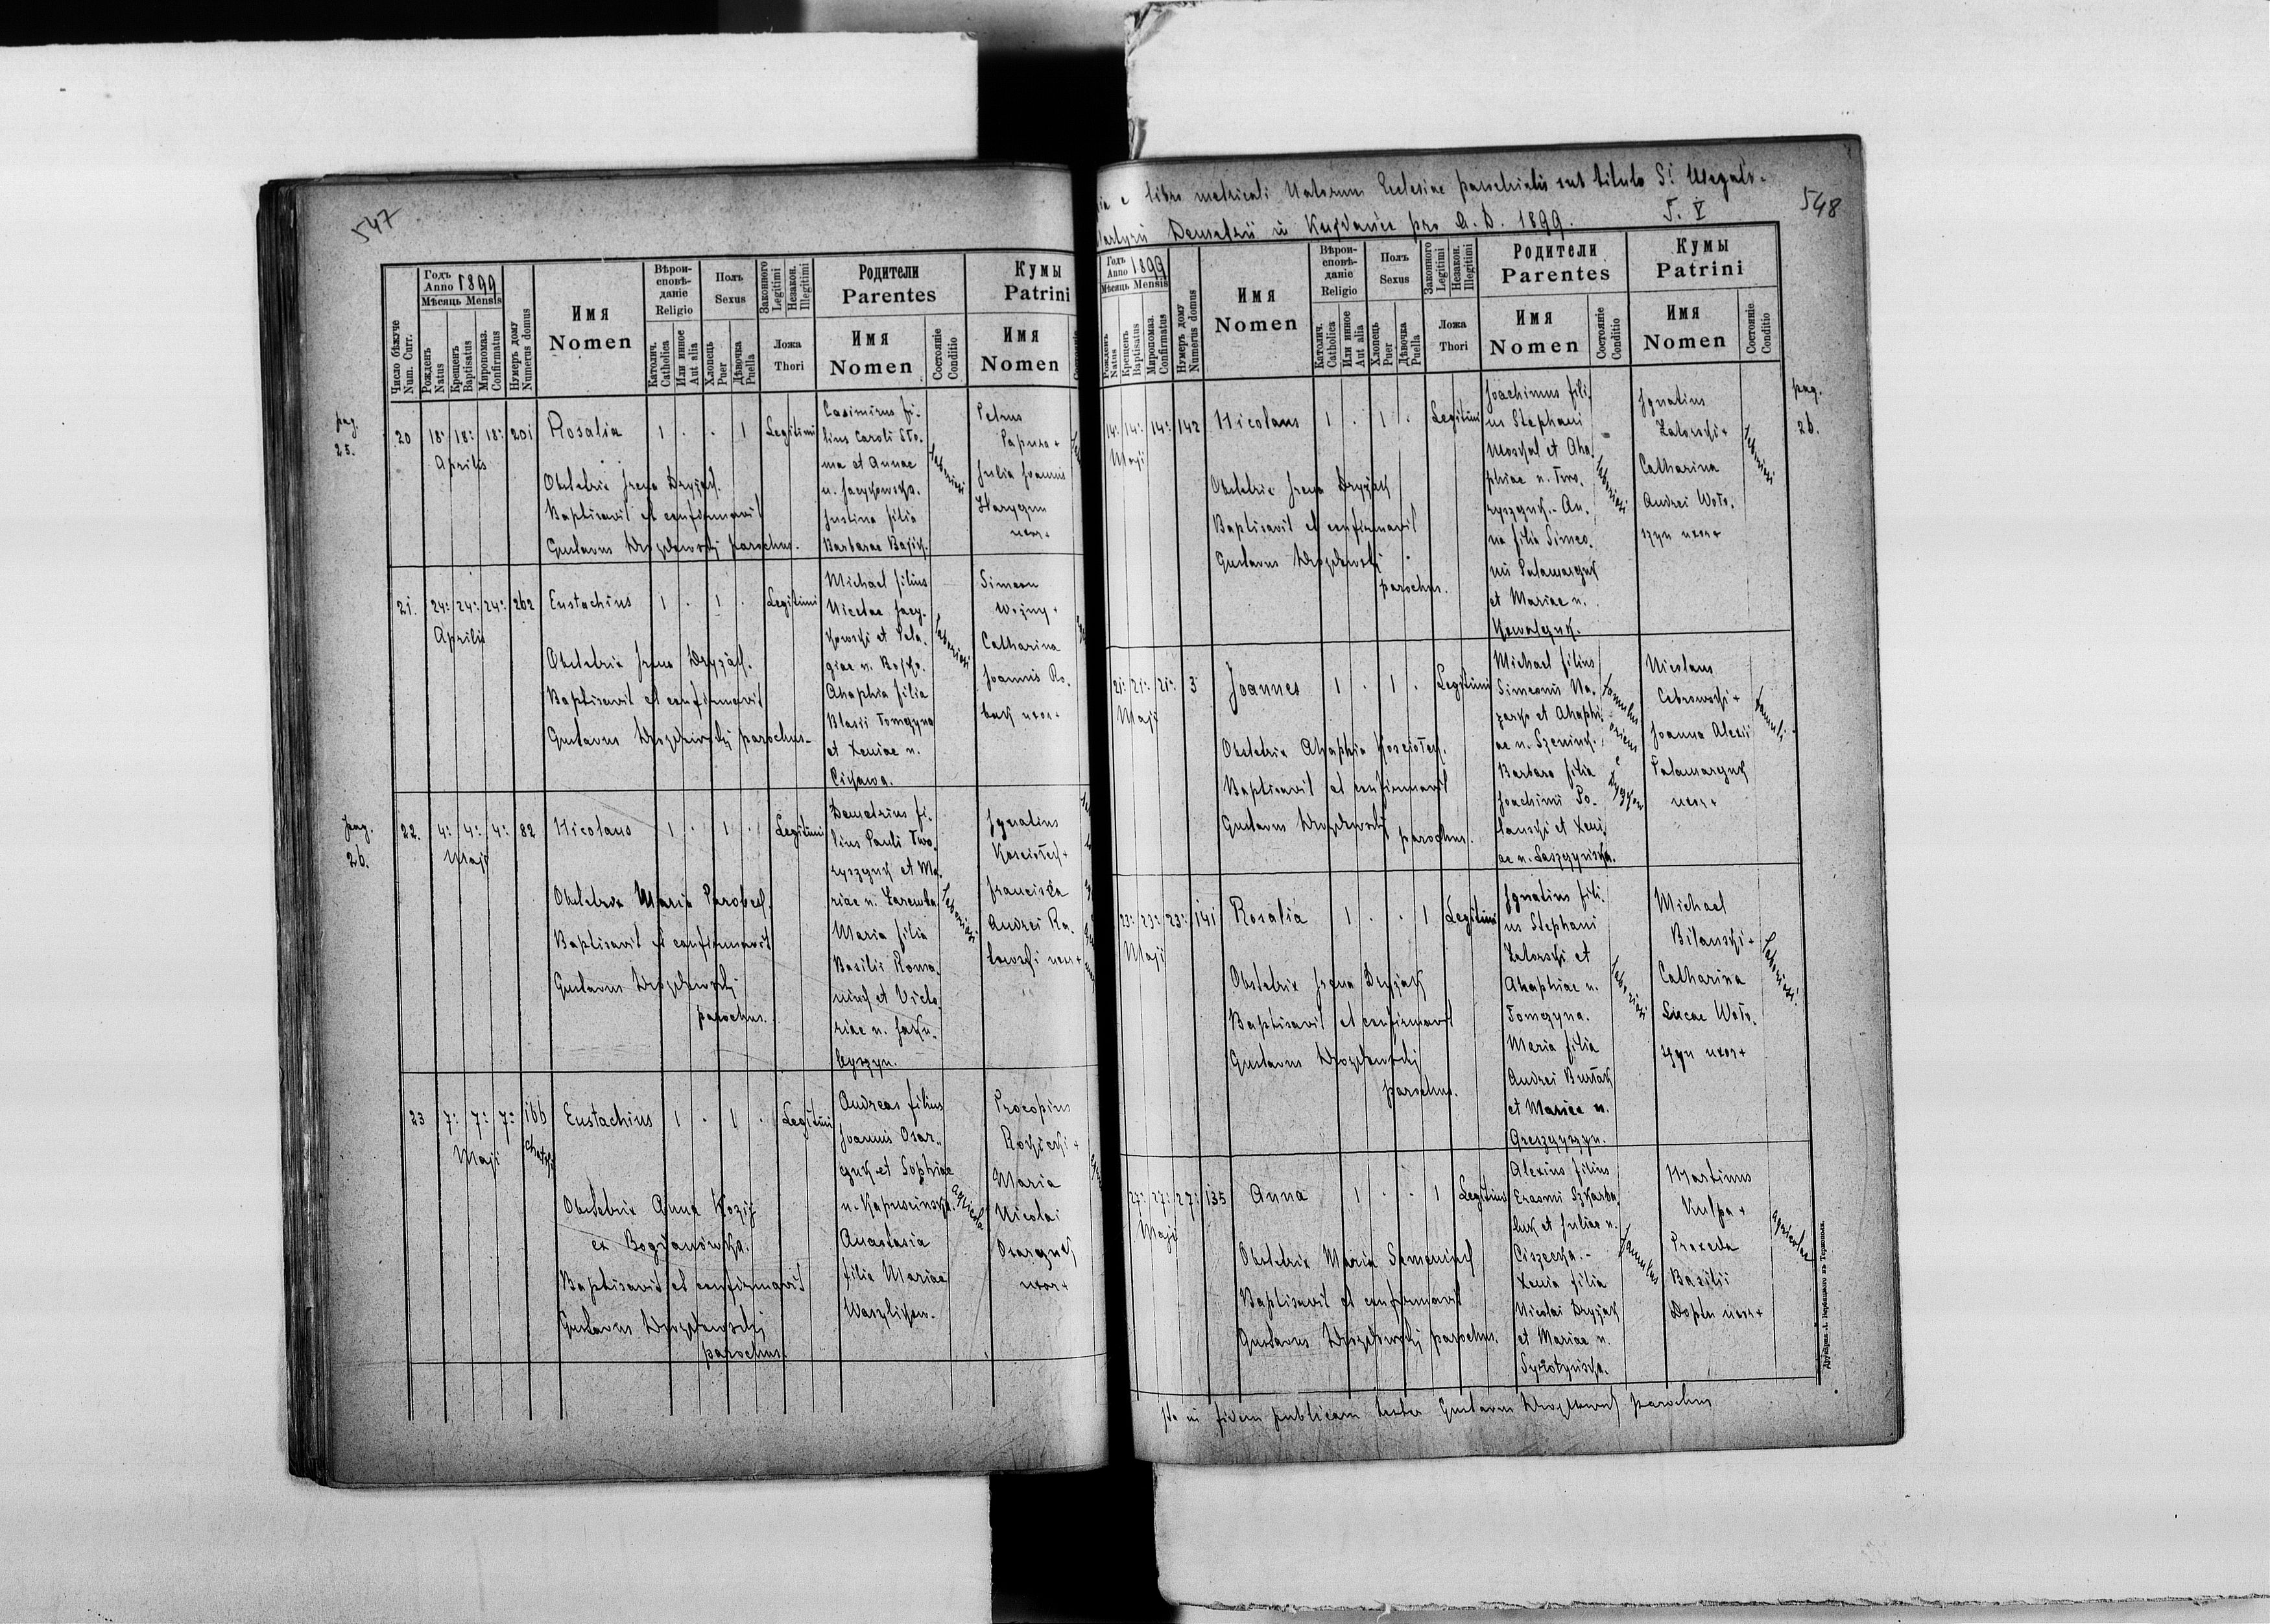 547
Число бѣжуче
Num. Curr.
Годъ
Anno 1899
Мѣсяць Mensis
Рожденъ
Natus
Крещенъ
Baptisatus
Миропомаз.
Confirmatus
Нумеръ дому
Numerus domus
Имя
Nomen
Вѣрои-
сповѣ-
даніе
Religio
Католич.
Catholica
Или инное
Aut alia
Полъ
Sexus
Хлопець
Puer
Дѣвочка
Puella
Законного
Legitimi
Незакон.
Illegitimi
Ложа
Thori
Родители
Parentes
Имя
Nomen
Состояніе
Conditio
Кумы
Patrini
Имя
Nomen
pag.
25.
20 18: 18: 18: 201 Rosalia 1 . . 1 Legitimi
Aprilis
Obstetrix Irena Dryjak.
Baptisavit et confirmavit
Gustavus Drozdowskij parochus.
Casimirus fi-
lius Caroli Sło-
ma et Annae
n. Jacykowska.
Justina filia
Barbarae Bajik.
laboriosi
Petrus
Papuza +
Julia Joannis
Haryzun
uxor +
21. 24: 24: 24: 262 Eustachius 1 . 1 . Legitimi
Aprilis
Obstetrix Irena Dryjak.
Baptisavit et confirmavit
Gustavus Drozdowskij parochus.
Michael filius
Nicolae Jacy-
kowski et Pela-
giae n. Bojko.
Ahaphia filia
Blasii Tomczyna
et Xeniae n.
Cikawa.
laboriosi
Simeon
Woźny +
Catharina
Joannis Ro-
bak uxor +
pag.
26.
22. 4: 4: 4: 82 Nicolaus 1 . 1 . Legitimi
Maji
Obstetrix Maria Parobecf.
Baptisavit et confirmavit
Gustavus Drozdowskij
parochus.
Demetrius fi-
lius Pauli Two-
ryszczuk et Ma-
riae n. Zaremba
Maria filia
Basilii Roma-
niuk et Victo-
riae n. Jaku-
byszyn.
laboriosi
Ignatius
Kosciołek +
Francisca
Andrei Ra-
kowski uxor +
23 7: 7: 7: 166 Eustachius 1 . 1 . Legitimi
Maji
Chatki
Obstetrix Anna Kozij
ex Bogdanówka.
Baptisavit et confirmavit
Gustavus Drozdowskij
parochus.
Andreas filius
Joannis Osar-
czuk et Sophiae
n. Kapuscinska.
Anastasia
filia Mariae
Waszlikow.
agricola
Procopius
Rokicki +
Maria
Nicolai
Osarczuk
uxor +
548
libro metricali Natorum Ecclesiae parochialis sub titulo S: Megalo-
Martyris Demetrii in Kujdańce pro A. D. 1899. T. V
Годъ
Anno 1899
Мѣсяць Mensis
Рожденъ
Natus
Крещенъ
Baptisatus
Миропомаз.
Confirmatus
Нумеръ дому
Numerus domus
Имя
Nomen
Вѣрои-
сповѣ-
даніе
Religio
Католич.
Catholica
Или инное
Aut alia
Полъ
Sexus
Хлопець
Puer
Дѣвочка
Puella
Законного
Legitimi
Незакон.
Illegitimi
Ложа
Thori
Родители
Parentes
Имя
Nomen
Состояніе
Conditio
Кумы
Patrini
Имя
Nomen
Состояніе
Conditio
pag.
26.
14: 14: 14: 142 Nicolaus 1 . 1 . Legitimi
Maji
Obstetrix Irena Dryjak
Baptisavit et confirmavit
Gustavus Drozdowskij
parochus.
Joachimus fili-
us Stephani
Moskal et Aha-
phiae n. Two-
ryszczuk. - An-
na filia Simeo-
nis Palamarczuk
et Mariae n.
Kowalczuk.
laboriosi
Ignatius
Zatorski +
Catharina
Andrei Woło-
szyn uxor +
laboriosi
21: 21: 21: 3 Joannes 1 . 1 . Legitimi
Maji
Obstetrix Ahaphia Kosciołek.
Baptisavit et confirmavit
Gustavus Drozdowskij
parochus.
Michael filius
Simeonis Na-
zarko et Ahaphi-
ae n. Szeniuk.
Barbara filia
Joachimi Po-
lanski et Xeni-
ae n. Laszczyńska.
famulus
oriens
e
Nicolaus
Cebrowski +
Joanna Alexii
Palamarczuk
uxor +
famuli
23: 23: 23: 141 Rosalia 1 . . 1 Legitimi
Maji
Obstetrix Irena Dryjak
Baptisavit et confirmavit
Gustavus Drozdowskij
parochus.
Ignatius fili-
us Stephani
Zatorski et
Ahaphiae n.
Tomczyna.
Maria filia
Andrei Burłak
et Mariae n.
Greszczyszyn.
laboriosi
Michael
Bilanski +
Catharina
Lucae Woło-
szyn uxor +
laboriosi
27: 27: 27: 135 Anna 1 . . 1 Legitimi
Maji
Obstetrix Maria Semeniuk
Baptisavit et confirmavit
Gustavus Drozdowskij parochus.
Alexius filius
Erasmi Szkarba-
luk et Juliae n.
Ciszecka. -
Xenia filia
Nicolai Dryjak
et Mariae n.
Syrotyńska.
famulus
Martinus
Kulpa +
Praxeda
Basilii
Dopta uxor +
agricolae
Ita in fidem publicam testor Gustavus Drozdowskij parochus